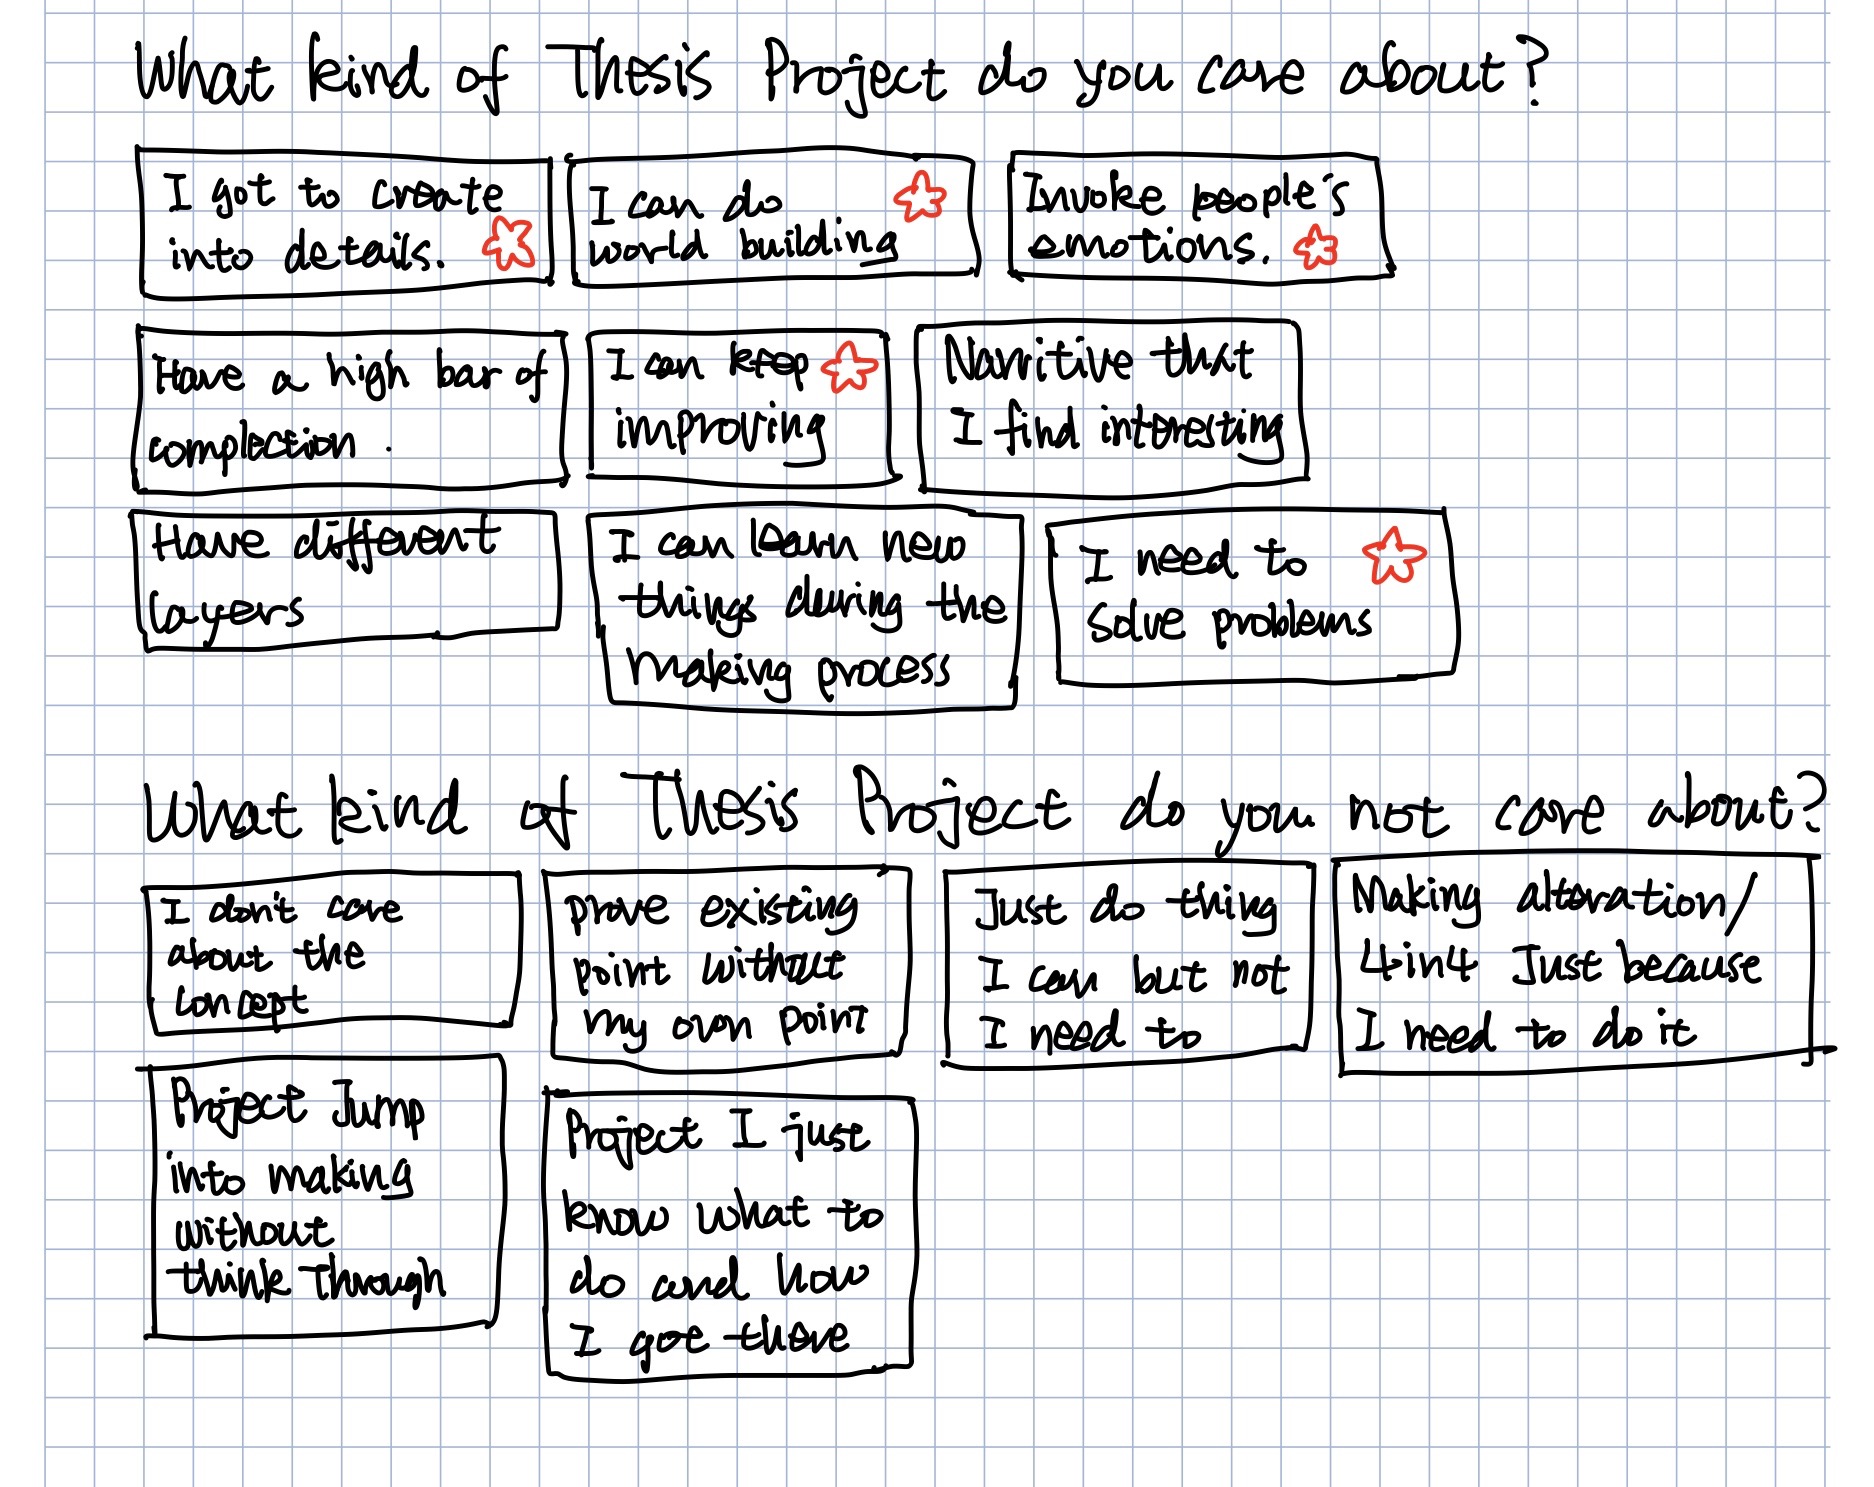 What kind of Thesis Project do you care about?
I got to create
into details.
I can do
world building
Invoke people's
emotions.
Have a high bar of
complection.
I can keep
improving
Narritive that
I find interesting
Have different
layers
I can learn new
things during the
making process
I need to
solve problems
What kind of Thesis Project do you not care about?
I don't care
about the
concept
prove existing
point without
my own point
Just do thing
I can but not
I need to
Making alteration/
4in4 Just because
I need to do it
Project Jump
into making
without
think through
Project I just
know what to
do and how
I get there